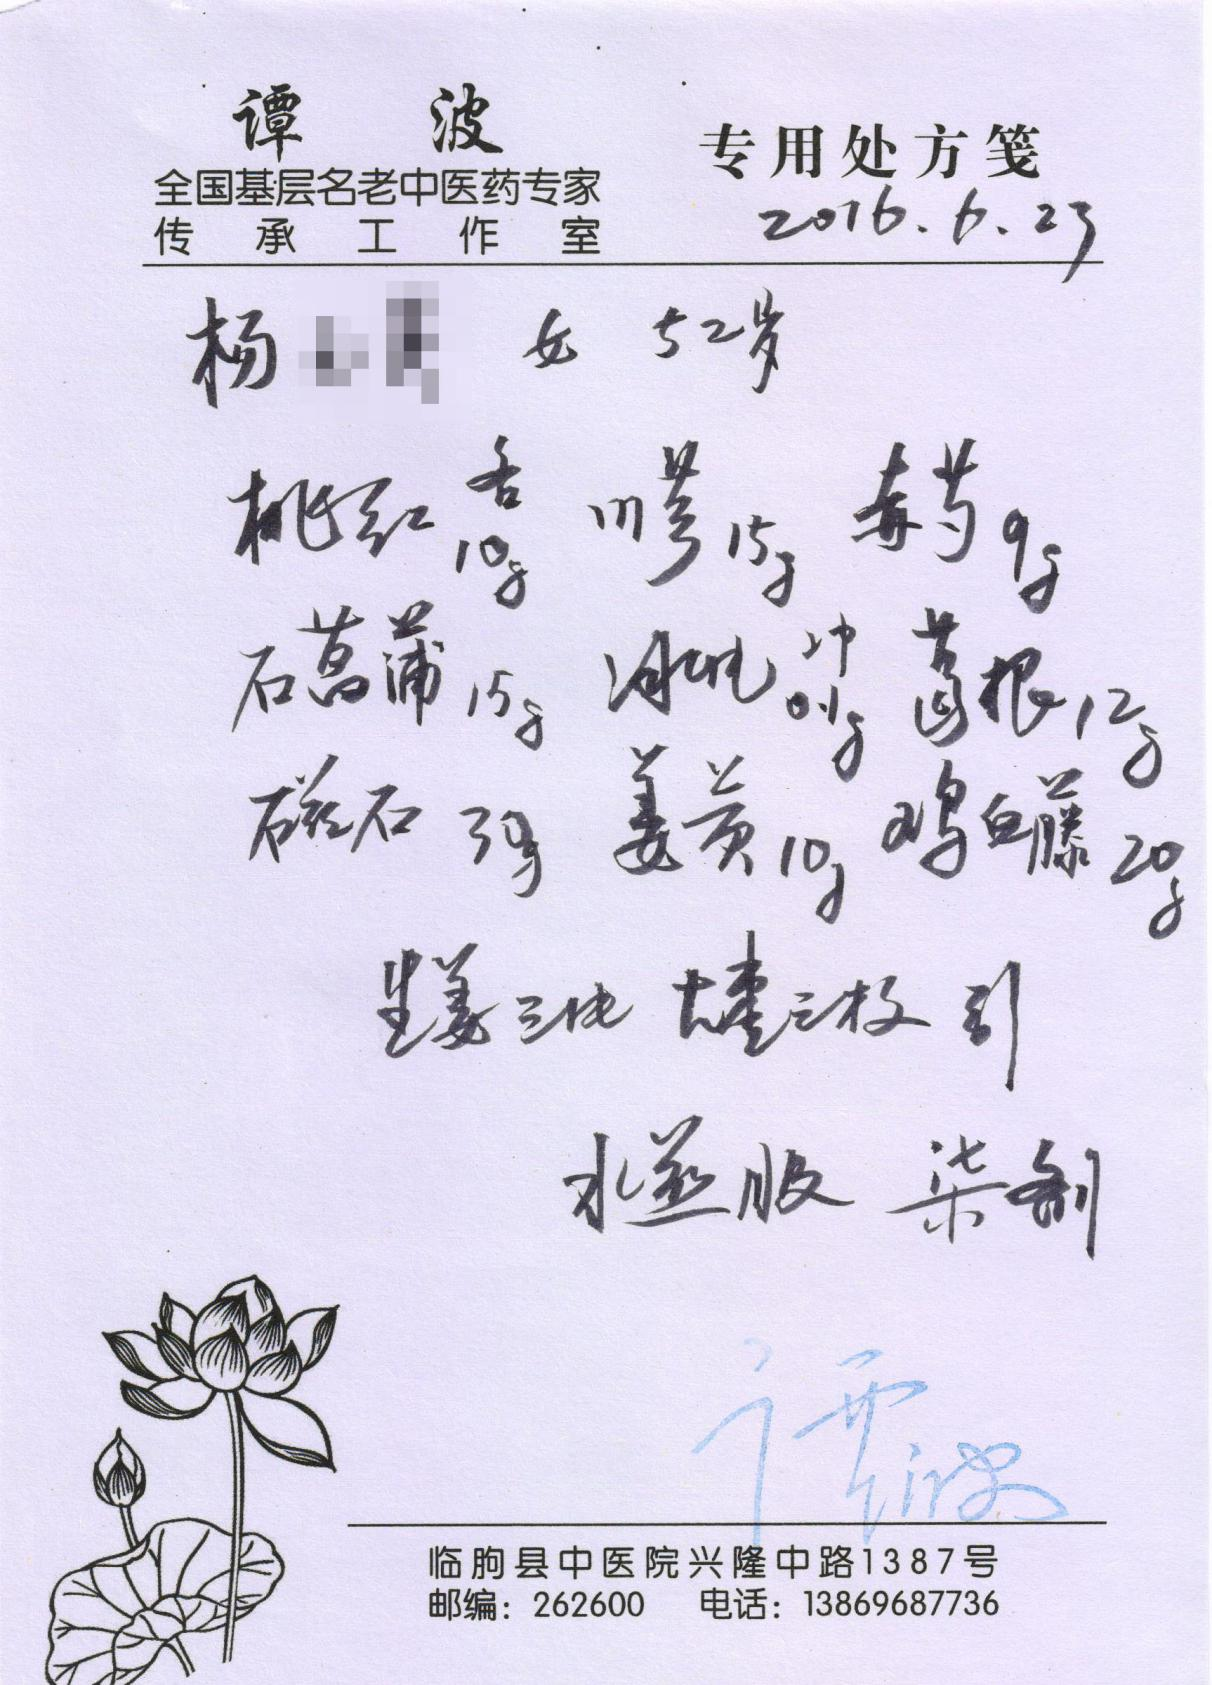 谭 波
全国基层名老中医药专家
传承工作室
专用处方笺
2016.6.23
杨 女 52岁
桃红各10g 川芎15g 赤芍9g
石菖蒲15g 冲0.1g 葛根12g
磁石30g 姜黄10g 鸡血藤20g
生姜三片 大枣三枚 引
水煎服 柒剂
谭波
临朐县中医院兴隆中路1387号
邮编：262600 电话：13869687736